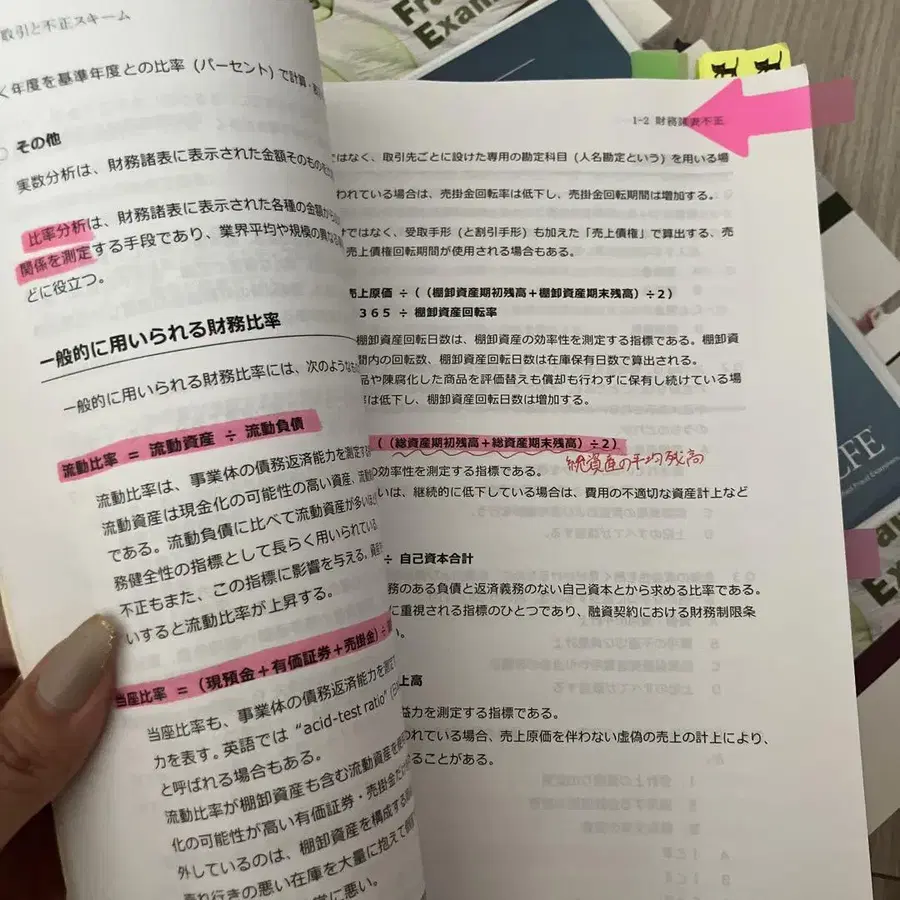 取引と不正スキーム
く年度を基準年度との比率（パーセント）で計算・
その他
実数分析は、財務諸表に表示された金額そのものを
比率分析は、財務諸表に表示された各種の金額から
関係を測定する手段であり、業界平均や規模の異なる
どに役立つ。
一般的に用いられる財務比率
一般的に用いられる財務比率には、次のような
流動比率 ＝ 流動資産 ÷ 流動負債
流動比率は、事業体の債務返済能力を測定する
流動資産は現金化の可能性の高い資産、流動
である。流動負債に比べて流動資産が多いほ
務健全性の指標として長らく用いられている
不正もまた、この指標に影響を与える。資産
いすると流動比率が上昇する。
当座比率 ＝（現預金＋有価証券＋売掛金）÷
当座比率も、事業体の債務返済能力を測定
力を表す。英語では“acid-test ratio”
と呼ばれる場合もある。
流動比率が棚卸資産も含む流動資産を
化の可能性が高い有価証券・売掛金だ
外しているのは、棚卸資産を構成する
売れ行きの悪い在庫を大量に抱えて
に悪い。
1-2 財務諸表不正
ではなく、取引先ごとに設けた専用の勘定科目（人名勘定という）を用いる場
われている場合は、売掛金回転率は低下し、売掛金回転期間は増加する。
ではなく、受取手形（と割引手形）も加えた「売上債権」で算出する、売
売上債権回転期間が使用される場合もある。
売上原価 ÷（（棚卸資産期初残高＋棚卸資産期末残高）÷２）
３６５ ÷ 棚卸資産回転率
棚卸資産回転日数は、棚卸資産の効率性を測定する指標である。棚卸資
間内の回転数、棚卸資産回転日数は在庫保有日数で算出される。
品や陳腐化した商品を評価替えも償却も行わずに保有し続けている場
は低下し、棚卸資産回転日数は増加する。
（（総資産期初残高＋総資産期末残高）÷２）
総資産の平均残高
の効率性を測定する指標である。
いは、継続的に低下している場合は、費用の不適切な資産計上など
÷ 自己資本合計
務のある負債と返済義務のない自己資本とから求める比率である。
に重視される指標のひとつであり、融資契約における財務制限条
上高
益力を測定する指標である。
われている場合、売上原価を伴わない虚偽の売上の計上により、
ることがある。
Fra
Exam
CFE
Exa